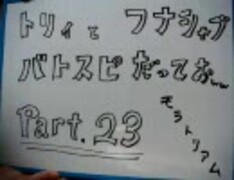 トリィとフナシャブ
バトスピだっておｗｗ
Part.23
モラトリアム